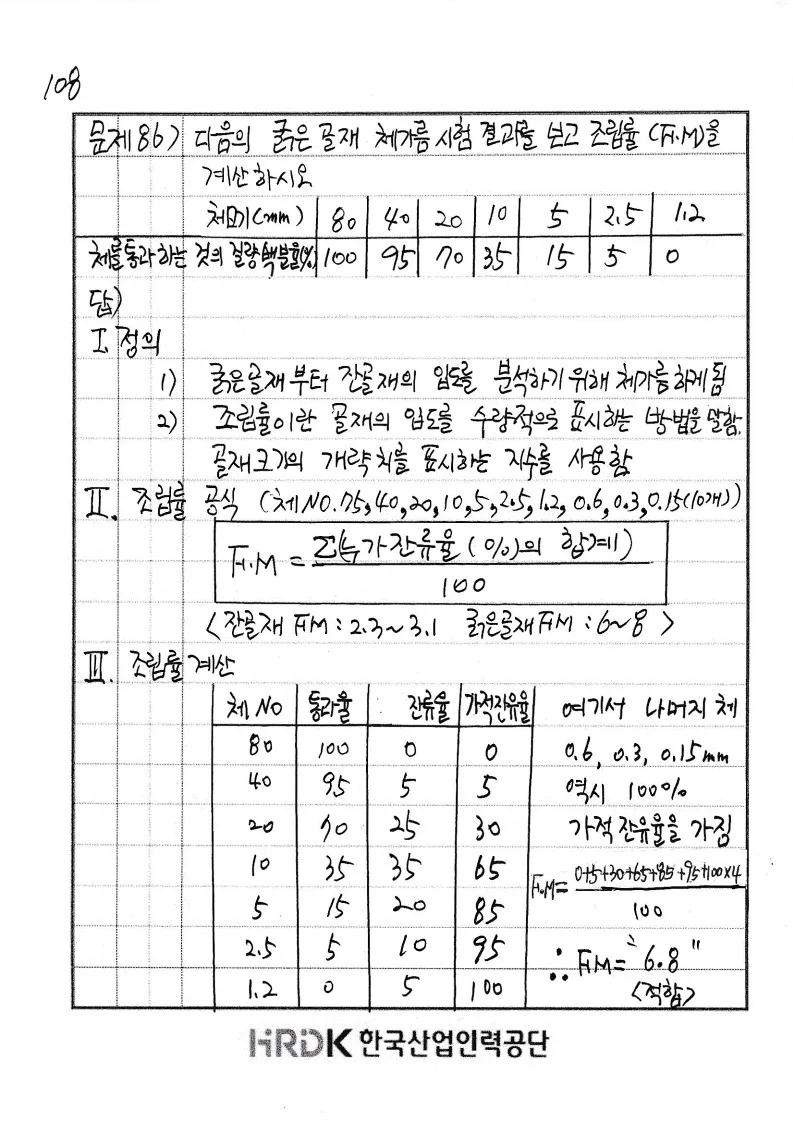 108
문제86) 다음의 굵은 골재 체가름 시험 결과를 보고 조립률 (F.M)을
계산하시오
체크기(mm) 80 40 20 10 5 2.5 1.2
체를 통과하는 것의 질량백분율(%) 100 95 70 35 15 5 0
답)
I. 정의
1) 굵은골재부터 잔골재의 입도를 분석하기 위해 체가름하게 됨
2) 조립률이란 골재의 입도를 수량적으로 표시하는 방법을 말함.
골재크기의 개략치를 표시하는 지수를 사용함
II. 조립률 공식 (체NO.75,40,20,10,5,2.5,1.2,0.6,0.3,0.15(10개))
F.M = Σ(누가잔류율(%)의 합계) / 100
<잔골재 F.M : 2.3~3.1 굵은골재 F.M : 6~8>
III. 조립률 계산
체 NO 통과율 잔류율 가적잔유율 여기서 나머지 체
80 100 0 0 0.6, 0.3, 0.15mm
40 95 5 5 역시 100%
20 70 25 30 가적 잔유율을 가짐
10 35 35 65 F.M = 0+5+30+65+85+95+100×4 / 100
5 15 20 85
2.5 5 10 95 ∴ F.M = "6.8"
1.2 0 5 100 <적합>
HRDK 한국산업인력공단